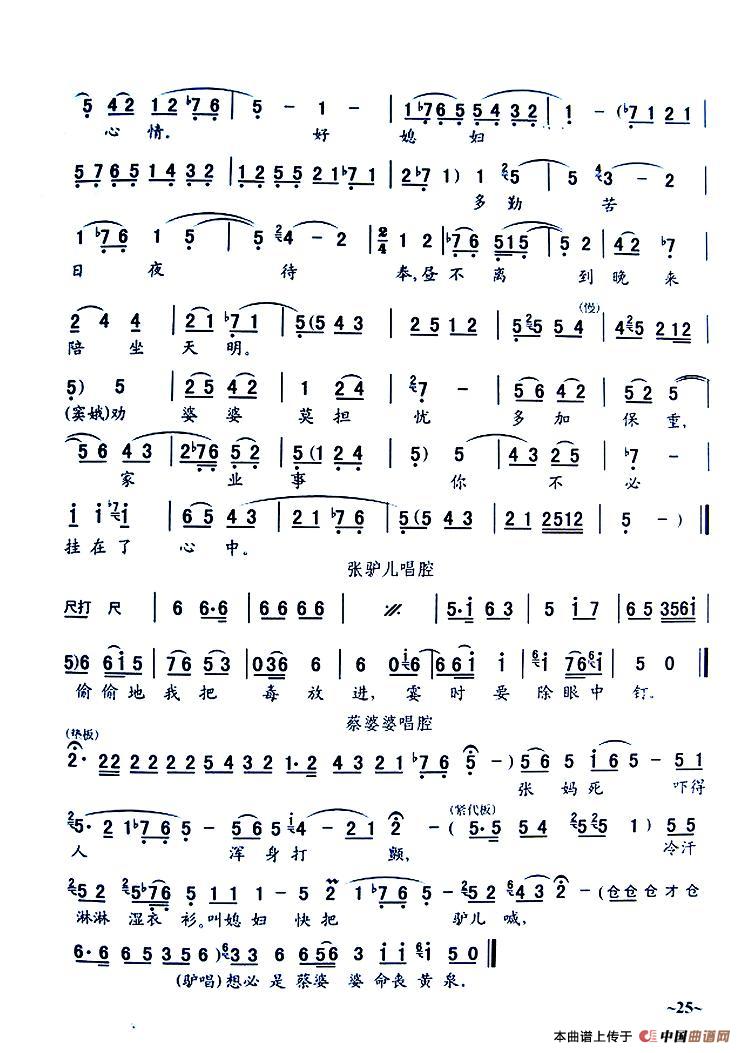 5 42 12 ♭76 | 5 - 1 - | 1♭765 5432 | 1 - (♭71 21 |
心 情。 好 媳 妇
5765 1432 | 1255 121♭7 | 2♭7 1) 1 5 | 5 43 - 2 |
多 勤 苦
1♭76 1 5 | 5 4 - 2 | 2/4 1 2 | ♭76 515 | 5 42 ♭7 |
日 夜 待 奉,昼 不 离 到 晚 来
2 4 4 | 21 ♭71 | 5(5 43 | 2512 | 55 54 | 425 212 |
(慢)
陪 坐 天 明。
5) 5 | 25 42 | 1 24 | 7 - | 56 42 | 52 5 |
(窦娥)劝 婆 婆 莫 担 忧 多 加 保 重,
56 43 | 2♭76 52 | 5(1 24 | 5) 5 | 43 25 | ♭7 - |
家 业 事 你 不 必
1 1 1 | 65 43 | 21 ♭76 | 5(5 43 | 21 2512 | 5 - ) ‖
挂 在 了 心 中。
张驴儿唱腔
尺打 尺 | 6 6·6 | 6666 6666 | 5·1 65 | 5 17 | 65 3561 |
5)6 615 | 76 565 | 036 6 | 6 01 | 661 | 1 761 | 5 0 |
偷 偷 地 我 把 毒 放 进, 霎 时 要 除 眼 中 钉。
蔡婆婆唱腔
(垫板)
2· 22 22225432 1·2 4321 ♭76 5 - ) 5 5 165 - 51
张 妈 死 吓得
5· 21♭76 5 - 565 4 - 21 2 - ( 5·5 54 525 1 ) 55
(紧代板)
人 浑 身 打 颤, 冷汗
52 525 5 111 - 5 - 12 1♭76 5 - 52 543 2 - (仓 仓 仓 才 仓
淋淋 湿衣 衫。叫媳 妇 快 把 驴儿 喊,
6·6 65 356)33 3 656 3 11 16 150 ‖
(驴唱)想必 是 蔡婆 婆 命丧 黄 泉。
~25~
本曲谱上传于 中国曲谱网